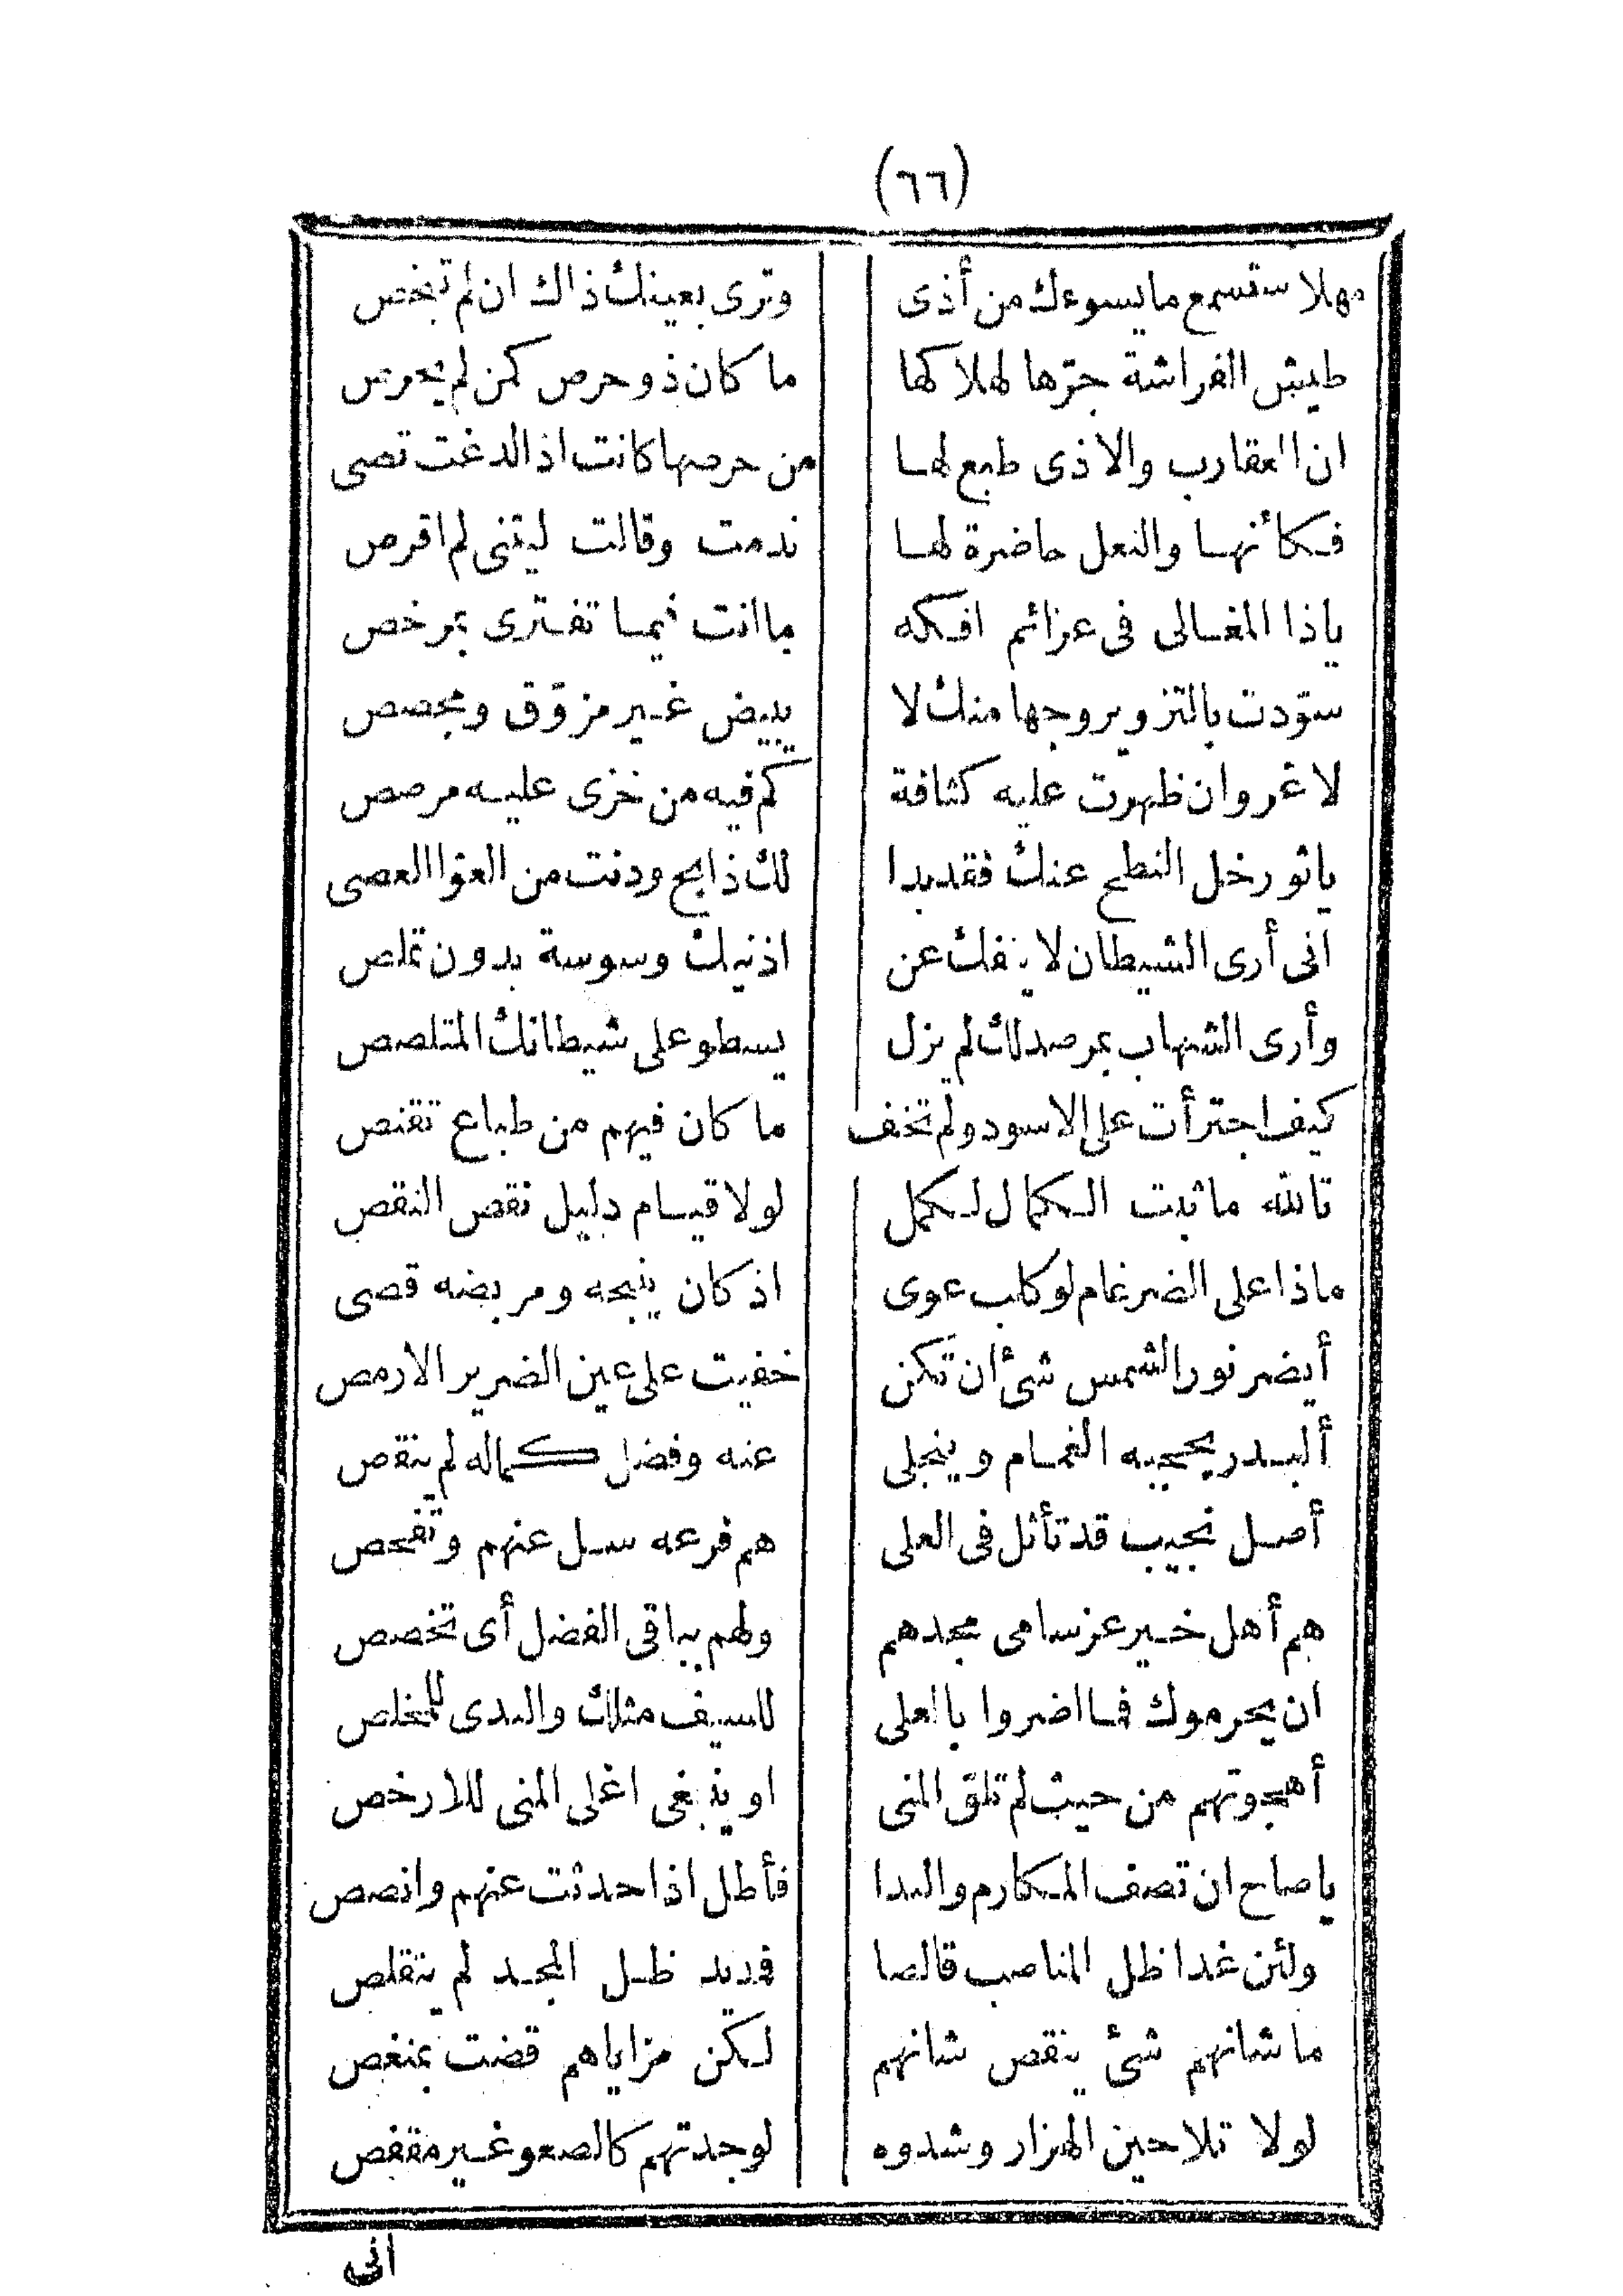 (٦٦)
مهلا ستسمع ما يسوءك من أذى وترى بعينك ذاك ان لم تبخص
طيش الفراشة جرّها لهلاكها ما كان ذو حرص كمن لم يحرص
ان العقارب والاذى طبع لها من حرصها كانت اذا لدغت تصى
فكأنها والنعل حاضرة لها ندمت وقالت ليتنى لم اقرص
ياذا المغالى فى عزائم افكه ما انت فيما تفترى بمرخص
سوّدت بالتزوير وجها منك لا يبيض غير مزوّق ومجصص
لا غرو ان ظهرت عليه كثافة كم فيه من خزى عليه مرصص
ياثور خل النطح عنك فقد بدا لك ذابح ودنت من العوّا العصى
انى أرى الشيطان لا ينفك عن اذنيك وسوسة بدون تملص
وأرى الشهاب بمرصد لك لم يزل يسطو على شيطانك المتلصص
كيف اجترأت على الاسود ولم تخف ما كان فيهم من طباع تقنص
تالله ما ثبت الكمال لكمل لولا قيام دليل نقص النقص
ماذا على الضرغام لو كلب عوى اذ كان ينبحه ومربضه قصى
أيضر نور الشمس شئ ان تكن خفيت على عين الضرير الارمص
ألبدر يحجبه الغمام وينجلى عنه وفضل كماله لم ينقص
أصل نجيب قد تأثل فى العلى هم فرعه سل عنهم وتفحص
هم أهل خير عز سامى مجدهم ولهم بباقى الفضل أى تخصص
ان يحرموك فما اضروا بالعلى للسيف مثلك والندى للمخلص
أهجوتهم من حيث لم تلق المنى او ينبغى اغلى المنى للارخص
ياصاح ان تصف المكارم والندا فأطل اذا حدثت عنهم وانصص
ولئن غدا ظل المناصب قالصا فمديد ظل المجد لم يتقلص
ما شانهم شئ ينقص شانهم لكن مزاياهم قضت بمنغص
لولا تلاحين الهزار وشدوه لوجدتهم كالصعو غير مقفص
انى